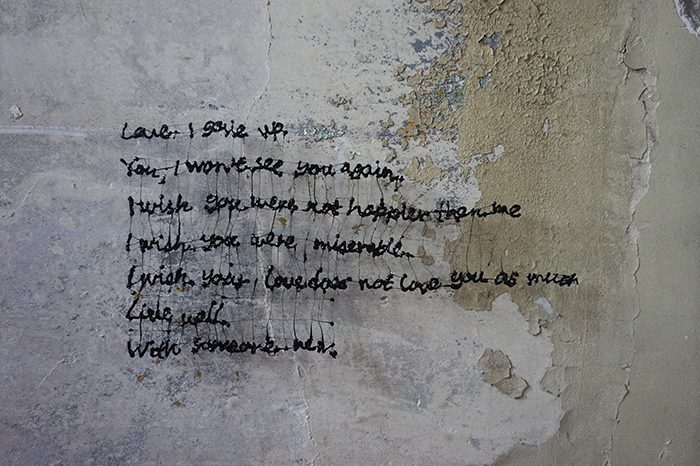 Love, I gave up.
You, I won't see you again,
I wish you were not happier than me
I wish you were, miserable.
I wish your, love does not love you as much
Live well.
With someone new.